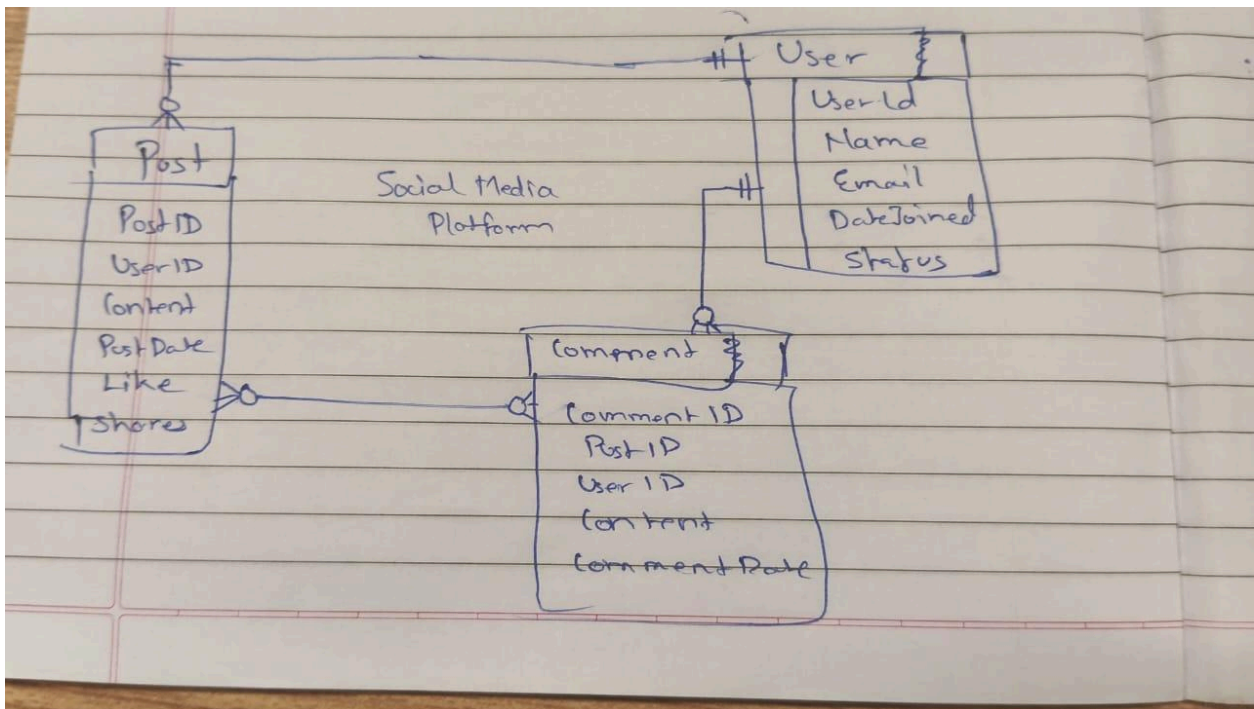 User
UserId
Name
Email
DateJoined
Status
Post
PostID
UserID
Content
PostDate
Like
Shares
Social Media
Platform
Comment
Comment ID
Post ID
User ID
Content
Comment Date